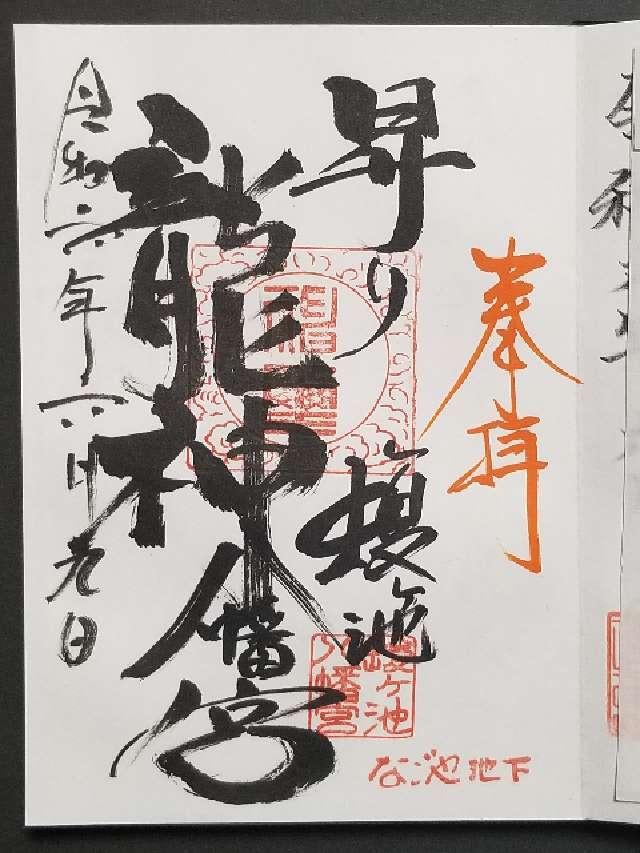 奉拝
昇り
龍神
蝮池
八幡宮
令和六年六月九日
蝮ヶ池
八幡宮
なごや池下